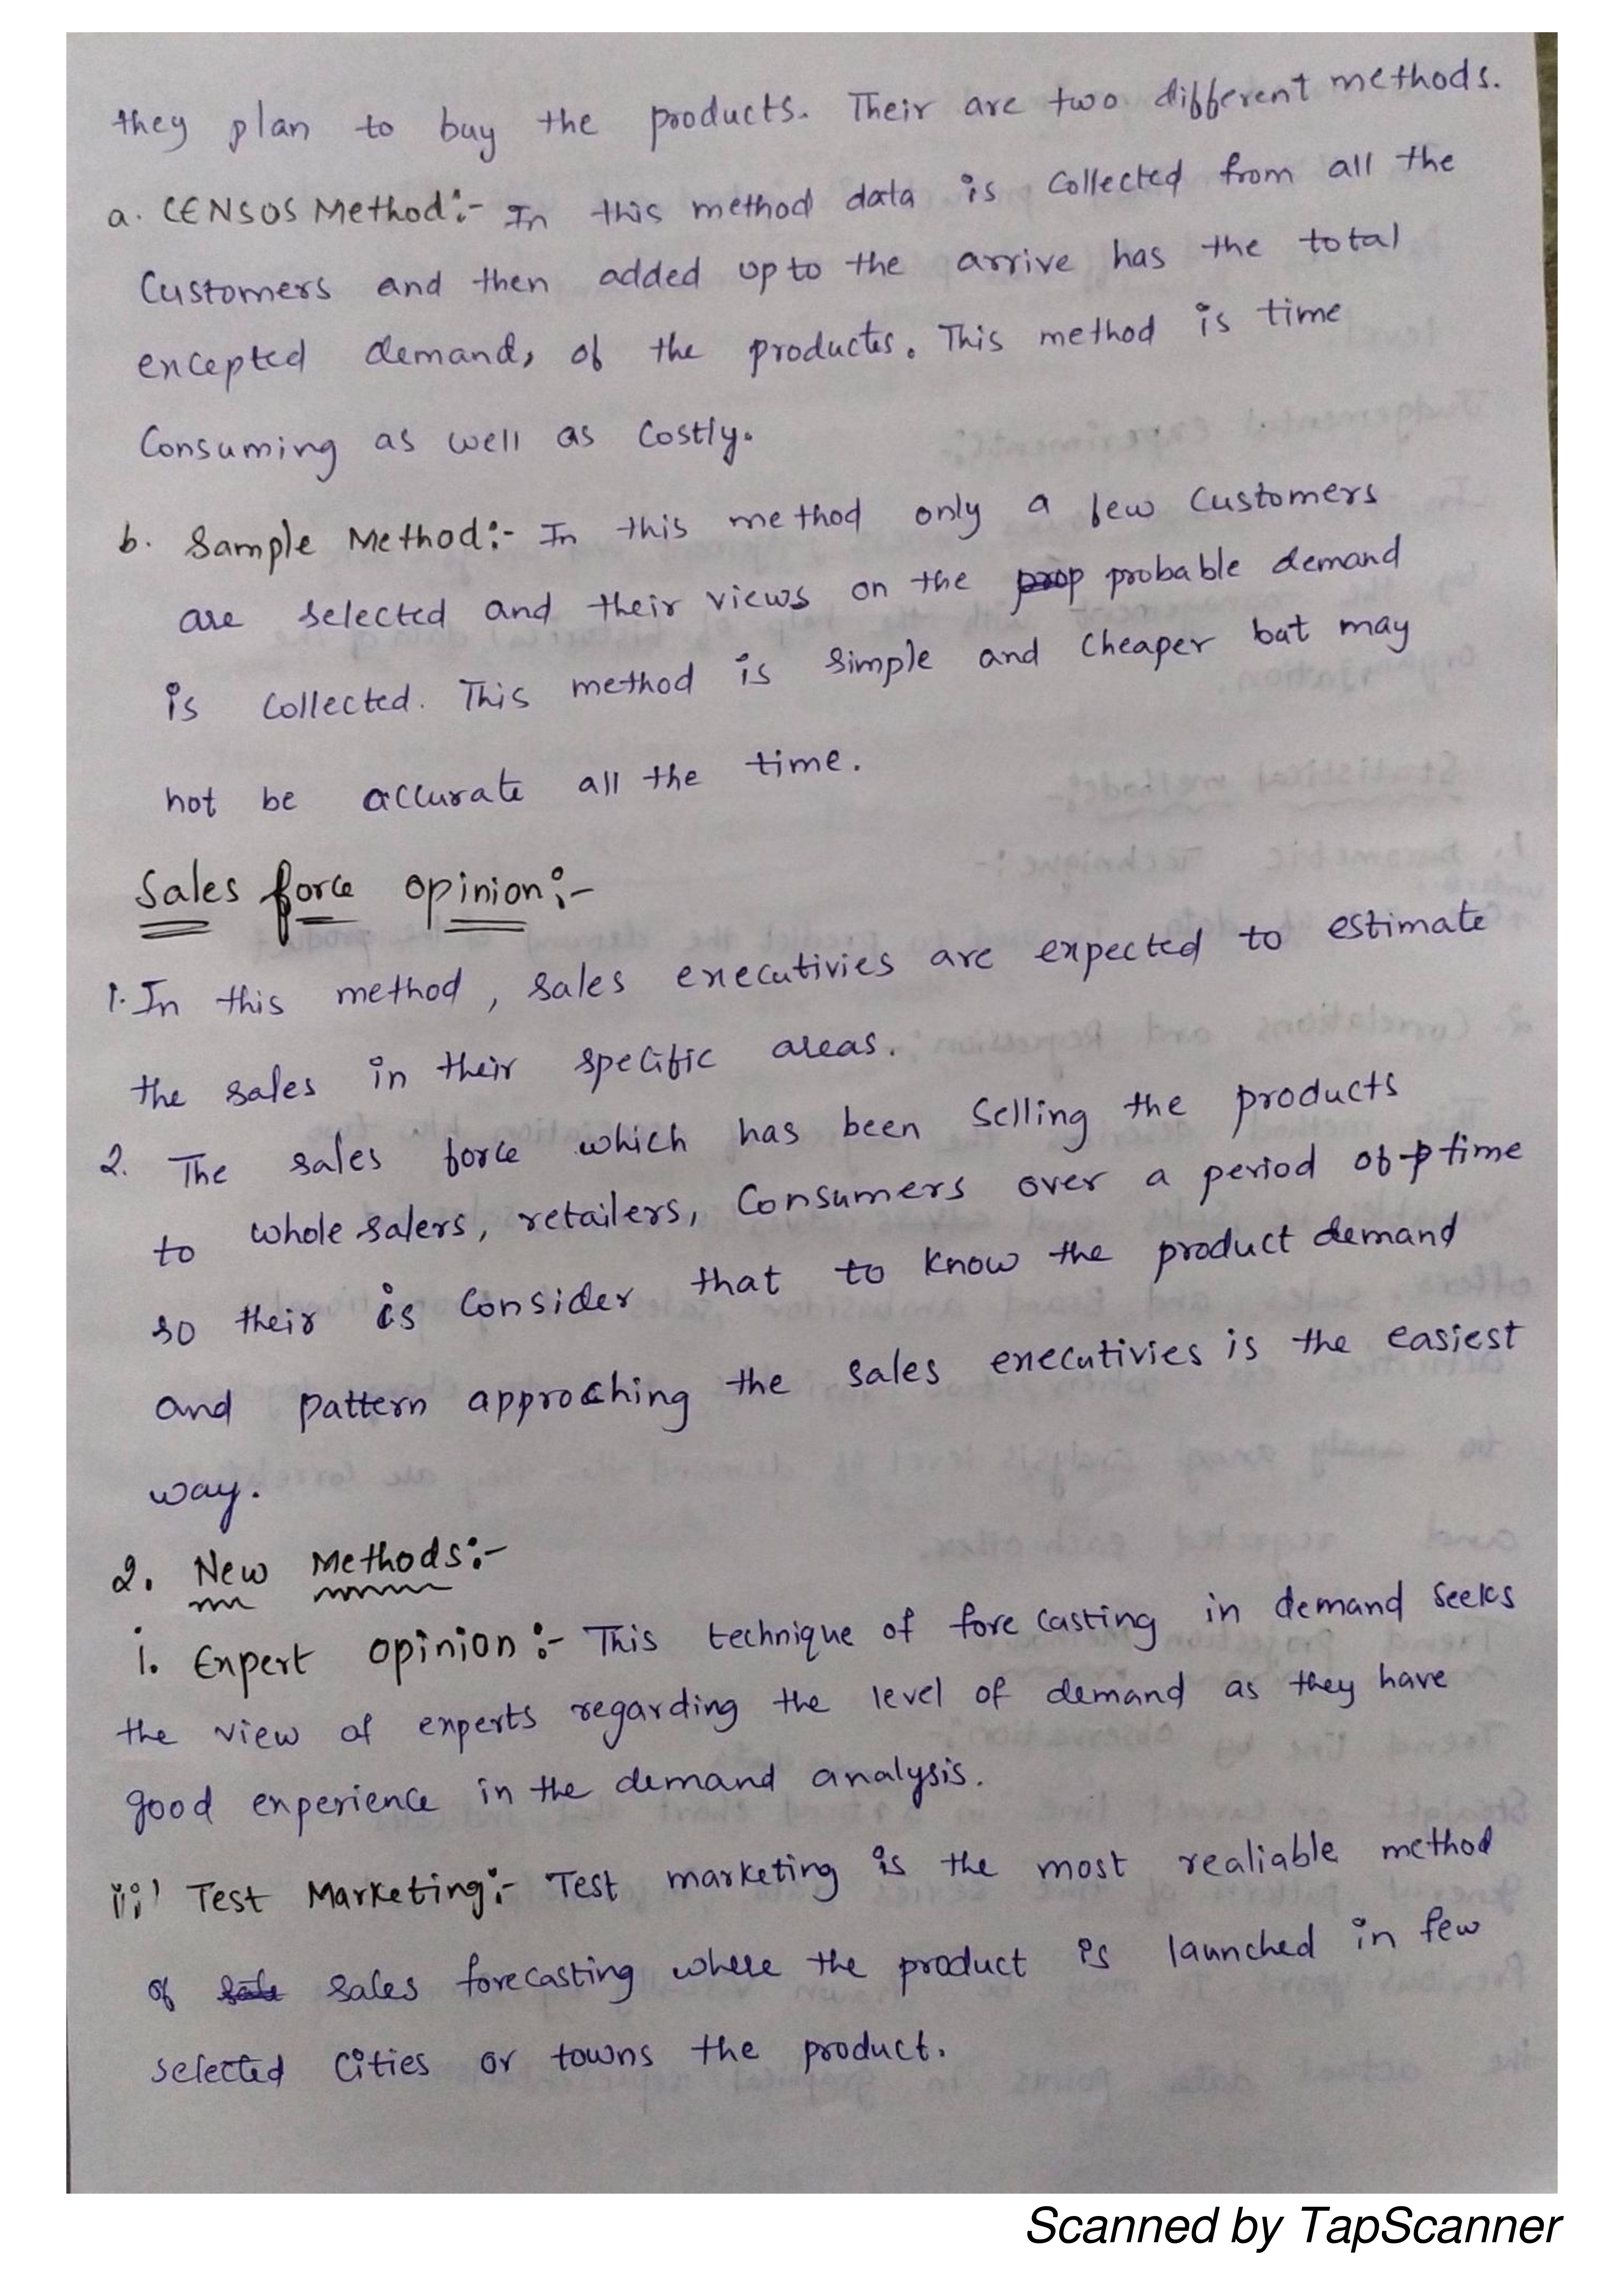 they plan to buy the products. Their are two different methods.
a. CENSOS Method:- In this method data is collected from all the
Customers and then added up to the arrive has the total
excepted demand, of the products. This method is time
Consuming as well as costly.
b. Sample Method:- In this method only a few customers
are selected and their views on the prop probable demand
is collected. This method is simple and cheaper but may
not be accurate all the time.
Sales force opinion:-
1. In this method, sales executivies are expected to estimate
the sales in their specific areas.
2. The sales force which has been selling the products
to whole salers, retailers, Consumers over a period of p time
so their is consider that to know the product demand
and pattern approching the sales executivies is the easiest
way.
2. New Methods:-
i. Expert opinion:- This technique of fore casting in demand seeks
the view of experts regarding the level of demand as they have
good experience in the demand analysis.
ii) Test Marketing:- Test marketing is the most realiable method
of sale sales forecasting where the product is launched in few
selected cities or towns the product.
Scanned by TapScanner